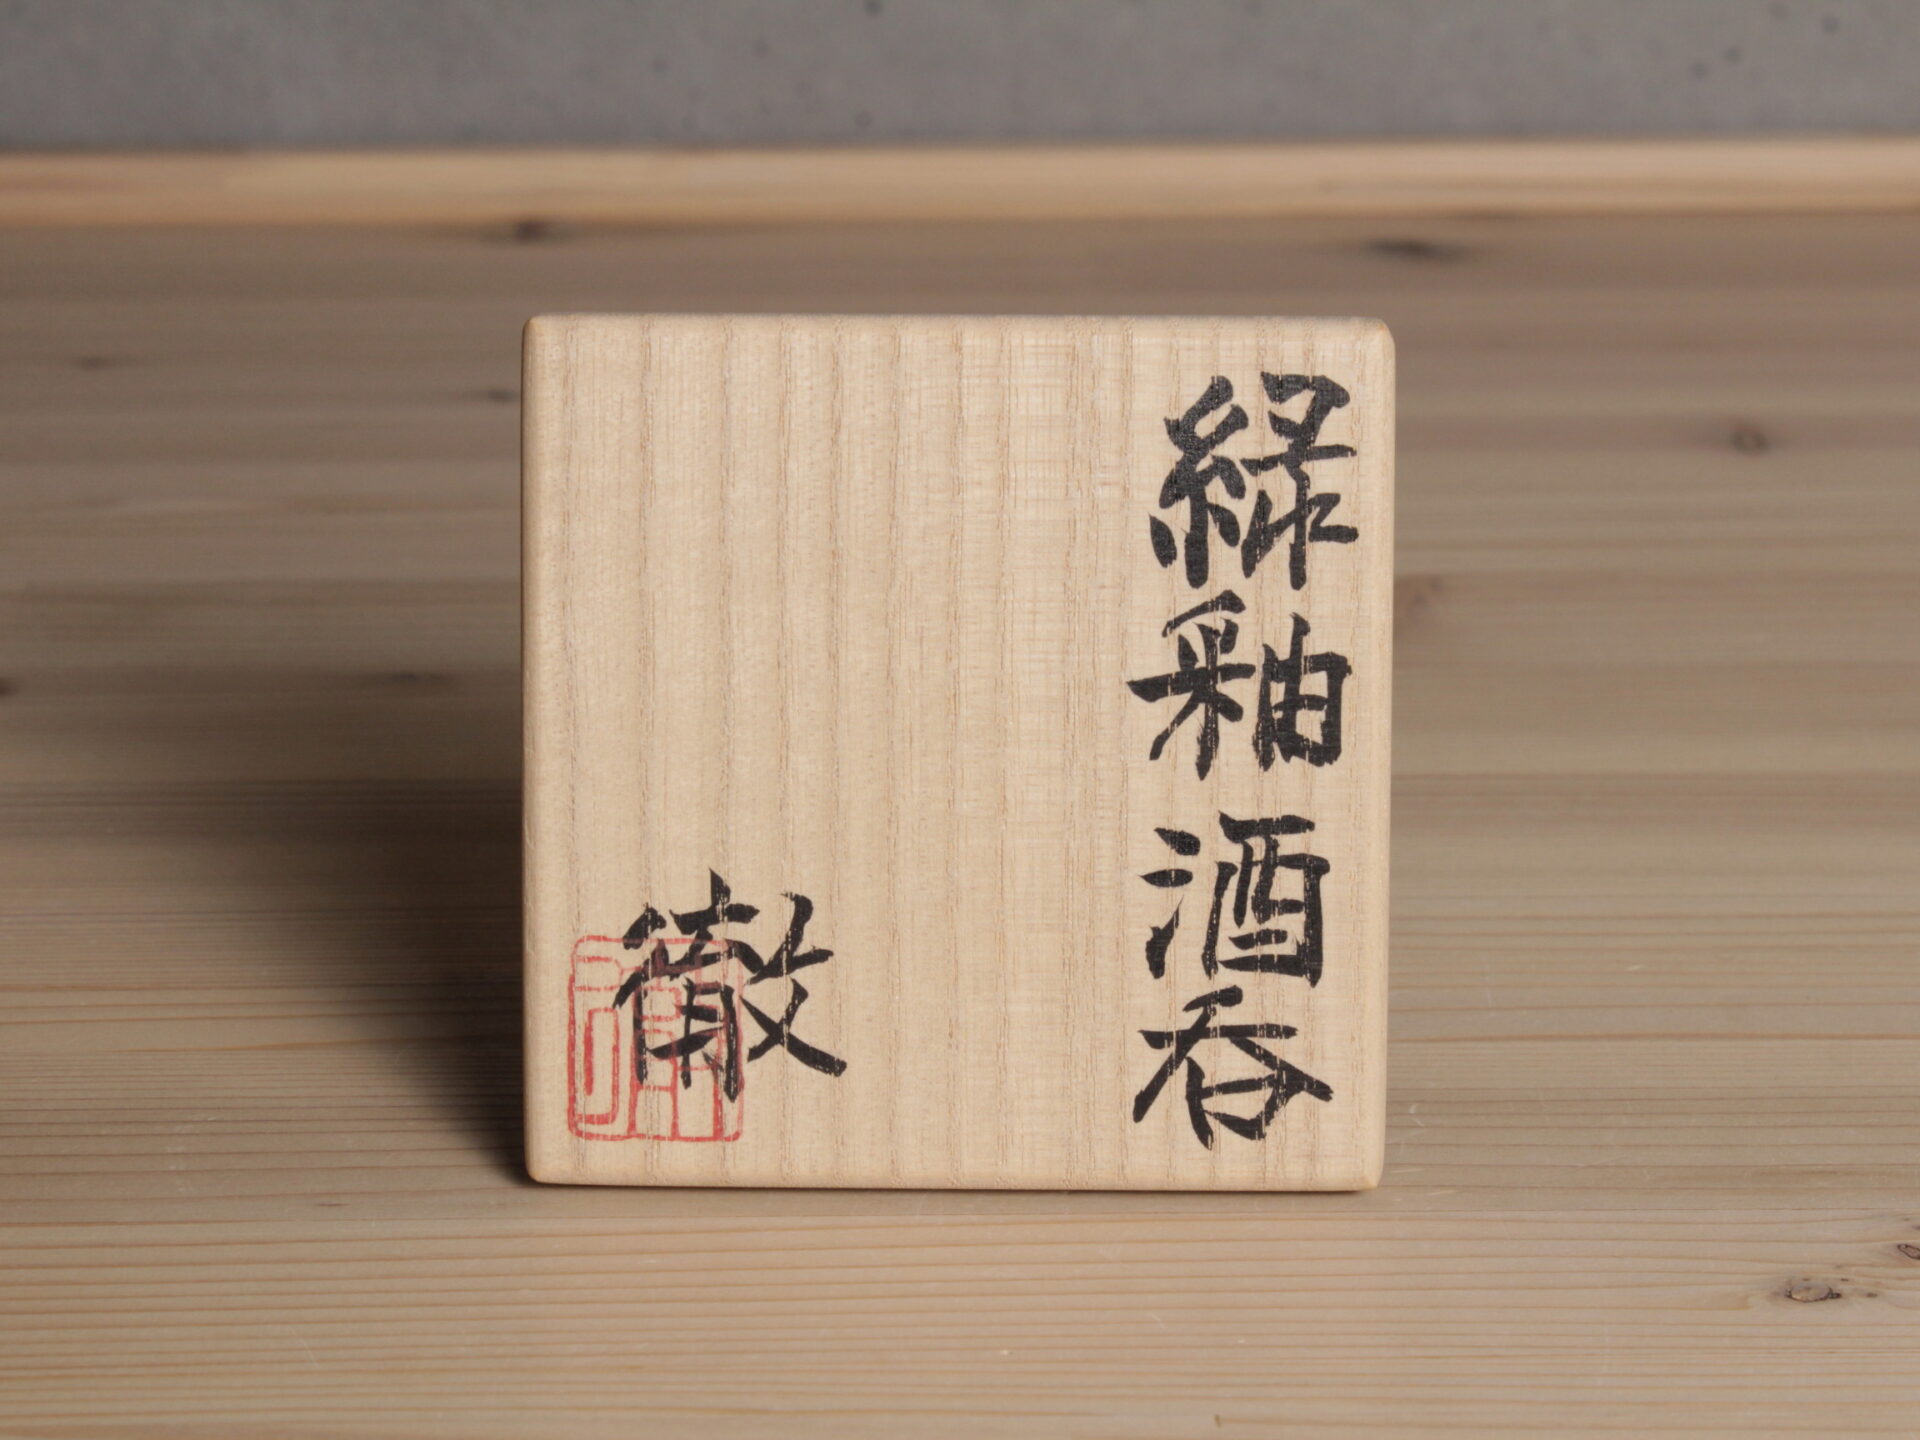 緑釉酒呑
徹